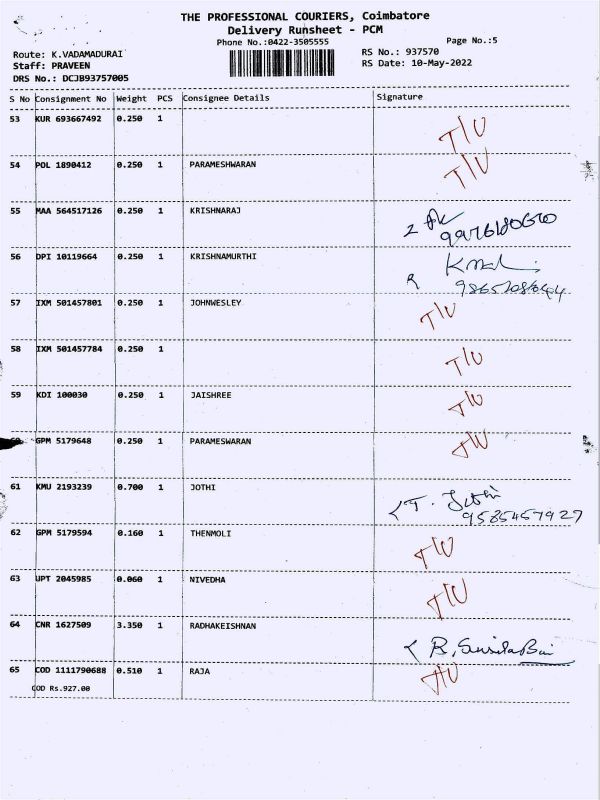 THE PROFESSIONAL COURIERS, Coimbatore
Delivery Runsheet - PCM
Phone No.:0422-3505555
Page No.:5
Route: K.VADAMADURAI
RS No.: 937570
Staff: PRAVEEN
RS Date: 10-May-2022
DRS No.: DCJB93757005
S No Consignment No Weight PCS Consignee Details Signature
53 KUR 693667492 0.250 1
T/U
54 POL 1890412 0.250 1 PARAMESHWARAN
T/U
55 MAA 564517126 0.250 1 KRISHNARAJ
56 DPI 10119664 0.250 1 KRISHNAMURTHI
57 IXM 501457801 0.250 1 JOHNWESLEY
T/U
58 IXM 501457784 0.250 1
T/U
59 KDI 100030 0.250 1 JAISHREE
T/U
60 GPM 5179648 0.250 1 PARAMESWARAN
T/U
61 KMU 2193239 0.700 1 JOTHI
T. Jothi
9585457927
62 GPM 5179594 0.160 1 THENMOLI
T/U
63 UPT 2045985 0.060 1 NIVEDHA
T/U
64 CNR 1627509 3.350 1 RADHAKEISHNAN
R. Susila Bai
65 COD 1111790688 0.510 1 RAJA
T/U
COD Rs.927.00